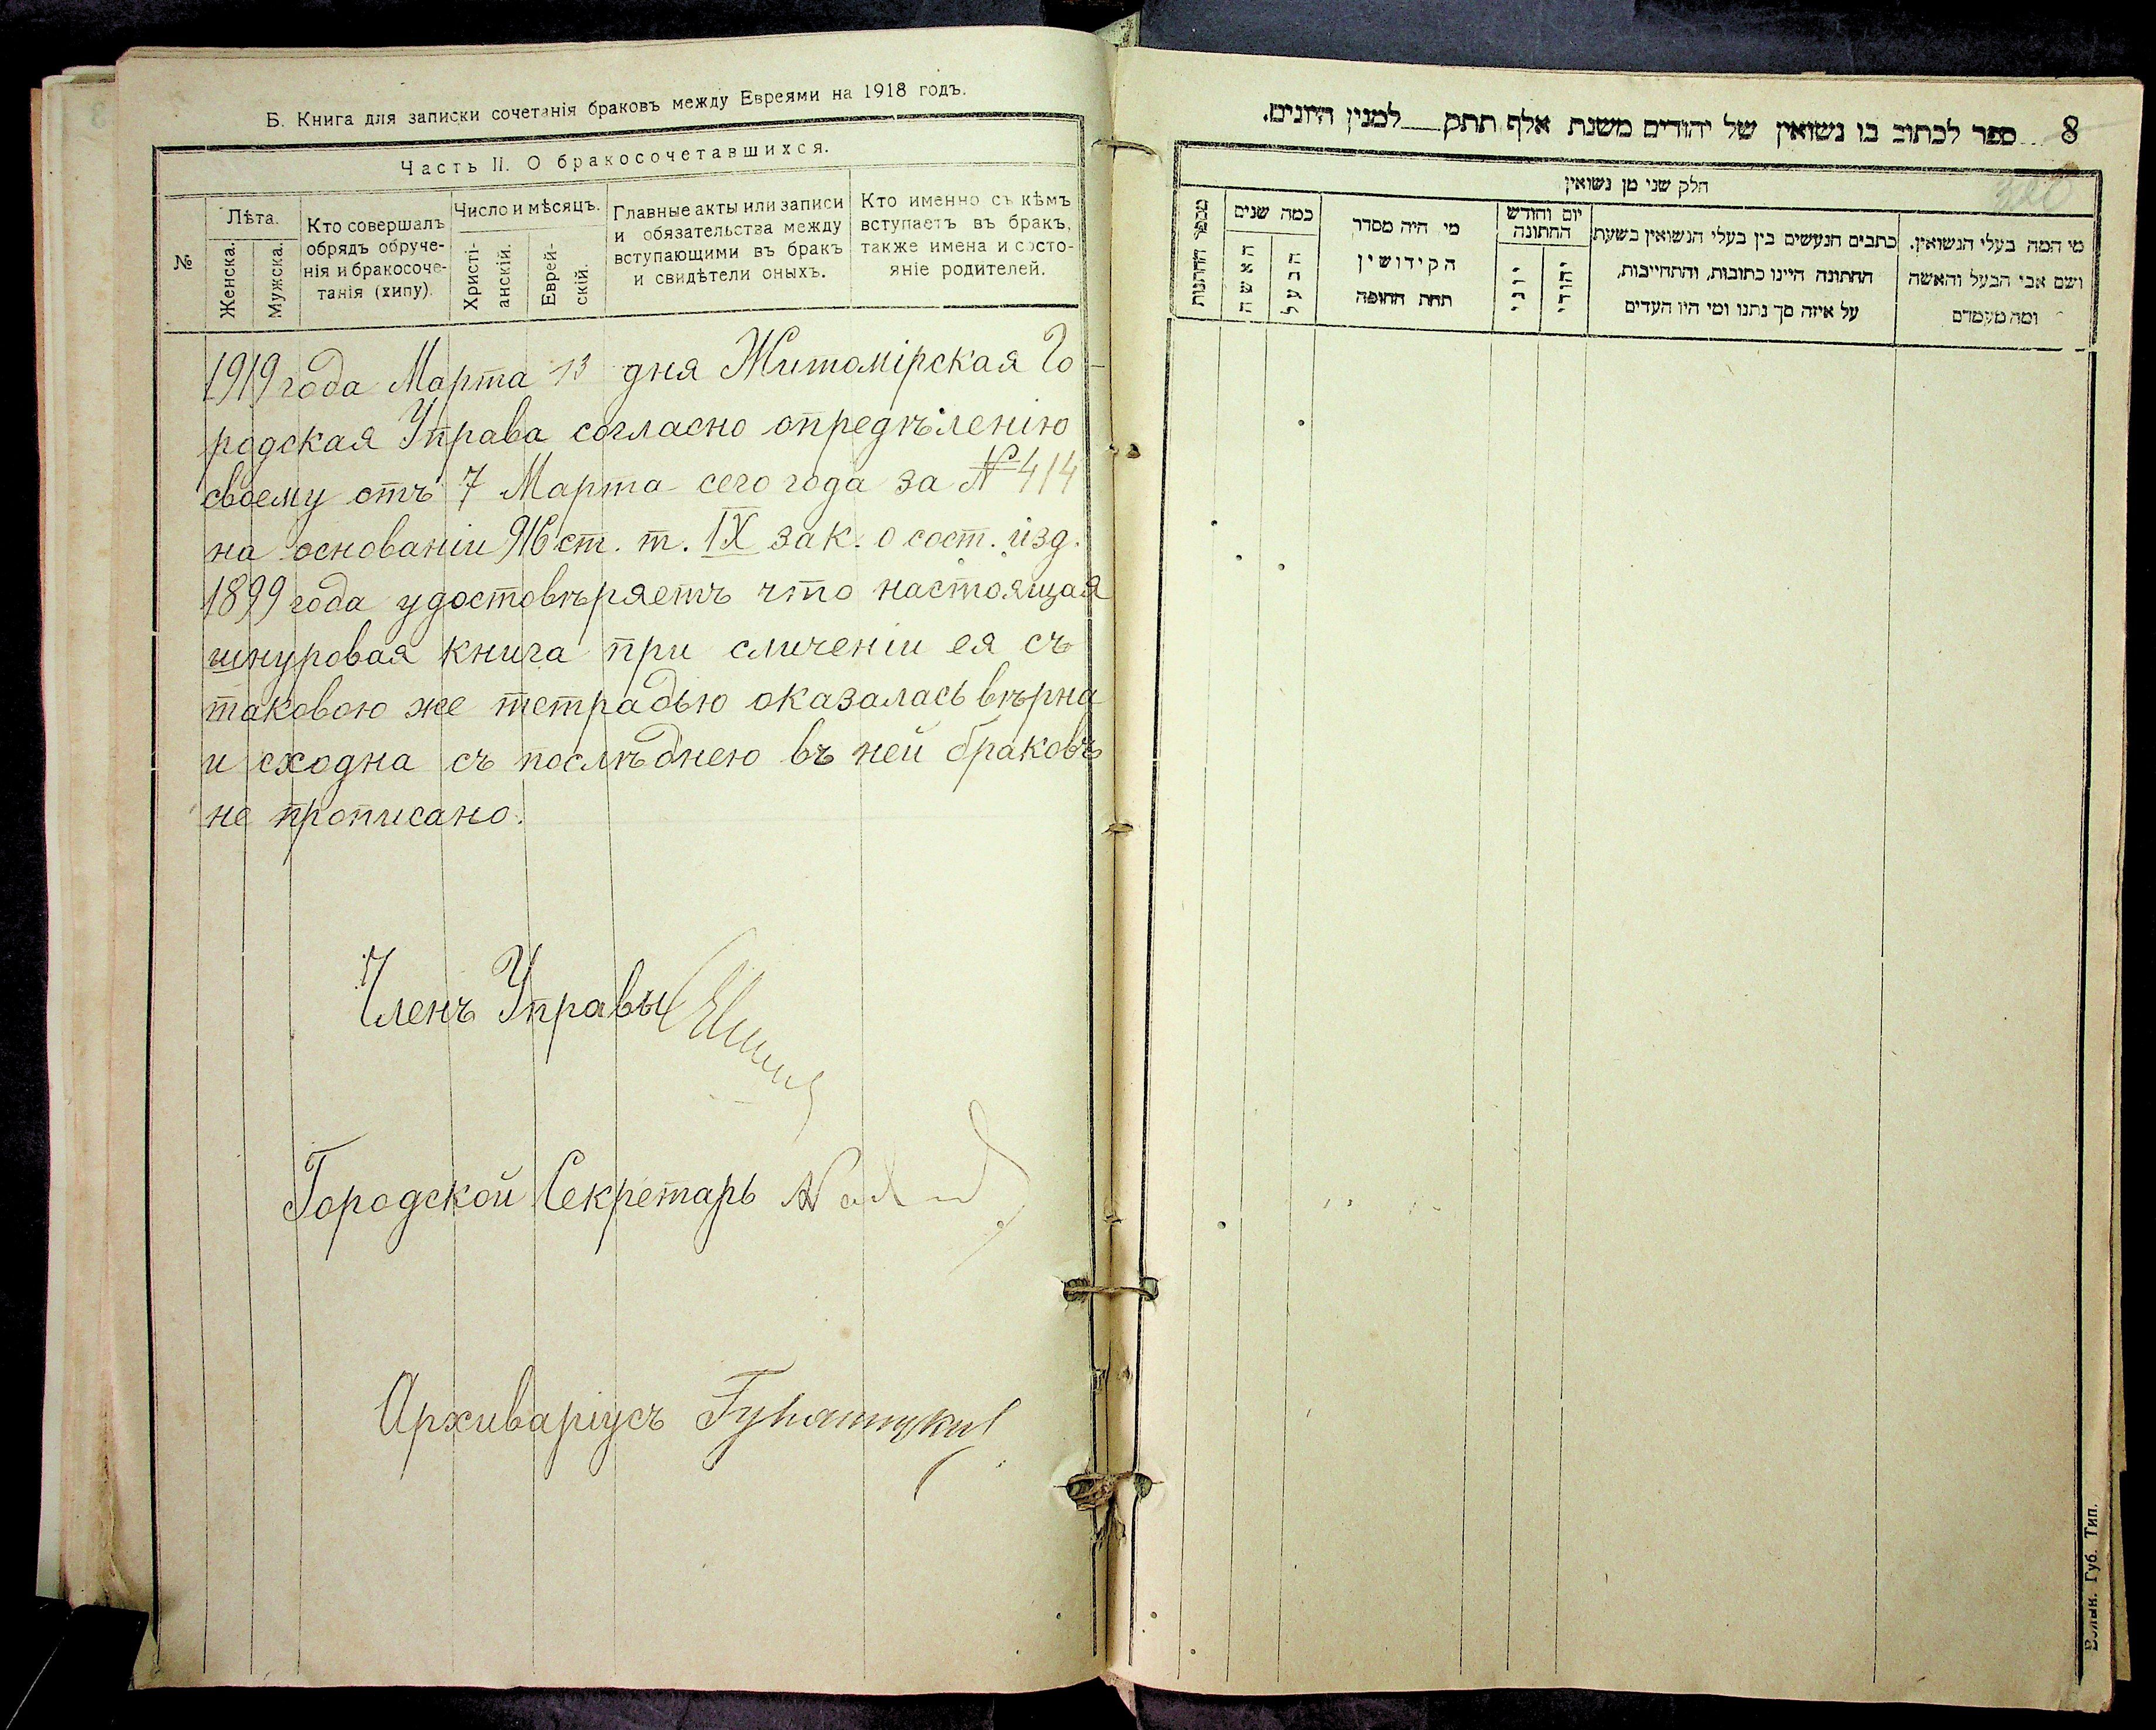 Б. Книга для записки сочетанія браковъ между Евреями на 1918 годъ.
Часть II. О бракосочетавшихся.
№
Лѣта.
Женска.
Мужска.
Кто совершалъ
обрядъ обруче-
нія и бракосоче-
танія (хипу).
Число и мѣсяцъ.
Христі-
анскій.
Еврей-
скій.
Главные акты или записи
и обязательства между
вступающими въ бракъ
и свидѣтели оныхъ.
Кто именно съ кѣмъ
вступаетъ въ бракъ,
также имена и состо-
яніе родителей.
1919 года Марта 13 дня Житомірская Го-
родская Управа согласно опредѣленію
своему отъ 7 Марта сего года за № 414
на основаніи 916 ст. т. IX зак. о сост. изд.
1899 года удостовѣряетъ что настоящая
шнуровая книга при сличеніи ея съ
таковою же тетрадью оказалась вѣрна
и сходна съ послѣднею въ ней браковъ
не прописано.
Членъ Управы
Городской Секретарь
Архиваріусъ
8
ספר לכתוב בו נשואין של יהודים משנת אלף תתק למנין היונים.
חלק שני מן נשואין
מי המה בעלי הנשואין.
ושם אבי הבעל והאשה
ומה מעמדם
כתבים הנעשים בין בעלי הנשואין בשעת
החתונה היינו כתובות, והתחייבות,
על איזה סך נתנו ומי היו העדים
יום וחודש
החתונה
יהודי
יוני
מי היה מסדר
הקידושין
תחת החופה
כמה שנים
הבעל
האשה
מספר החתונות
Волын. Губ. Тип.